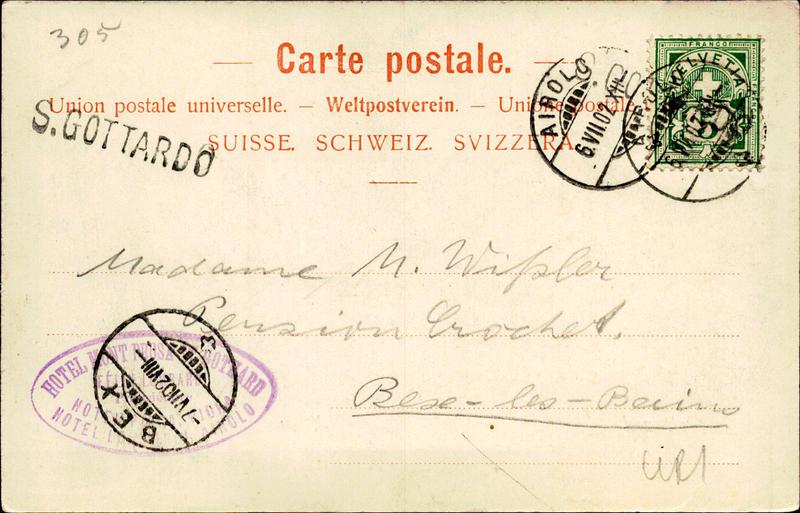 305
Carte postale.
Union postale universelle. — Weltpostverein. — Unione postale
SUISSE. SCHWEIZ. SVIZZERA.
S. GOTTARDO
AIROLO
6.VII.02.XII
FRANCO
HELVETIA
5
Madame M. Wißler
Pension Crochet.
Bex-les-Bains
BEX
-7.VII.02.VIII-
HOTEL MONT PROSA GOTTHARD
HOTEL
URI